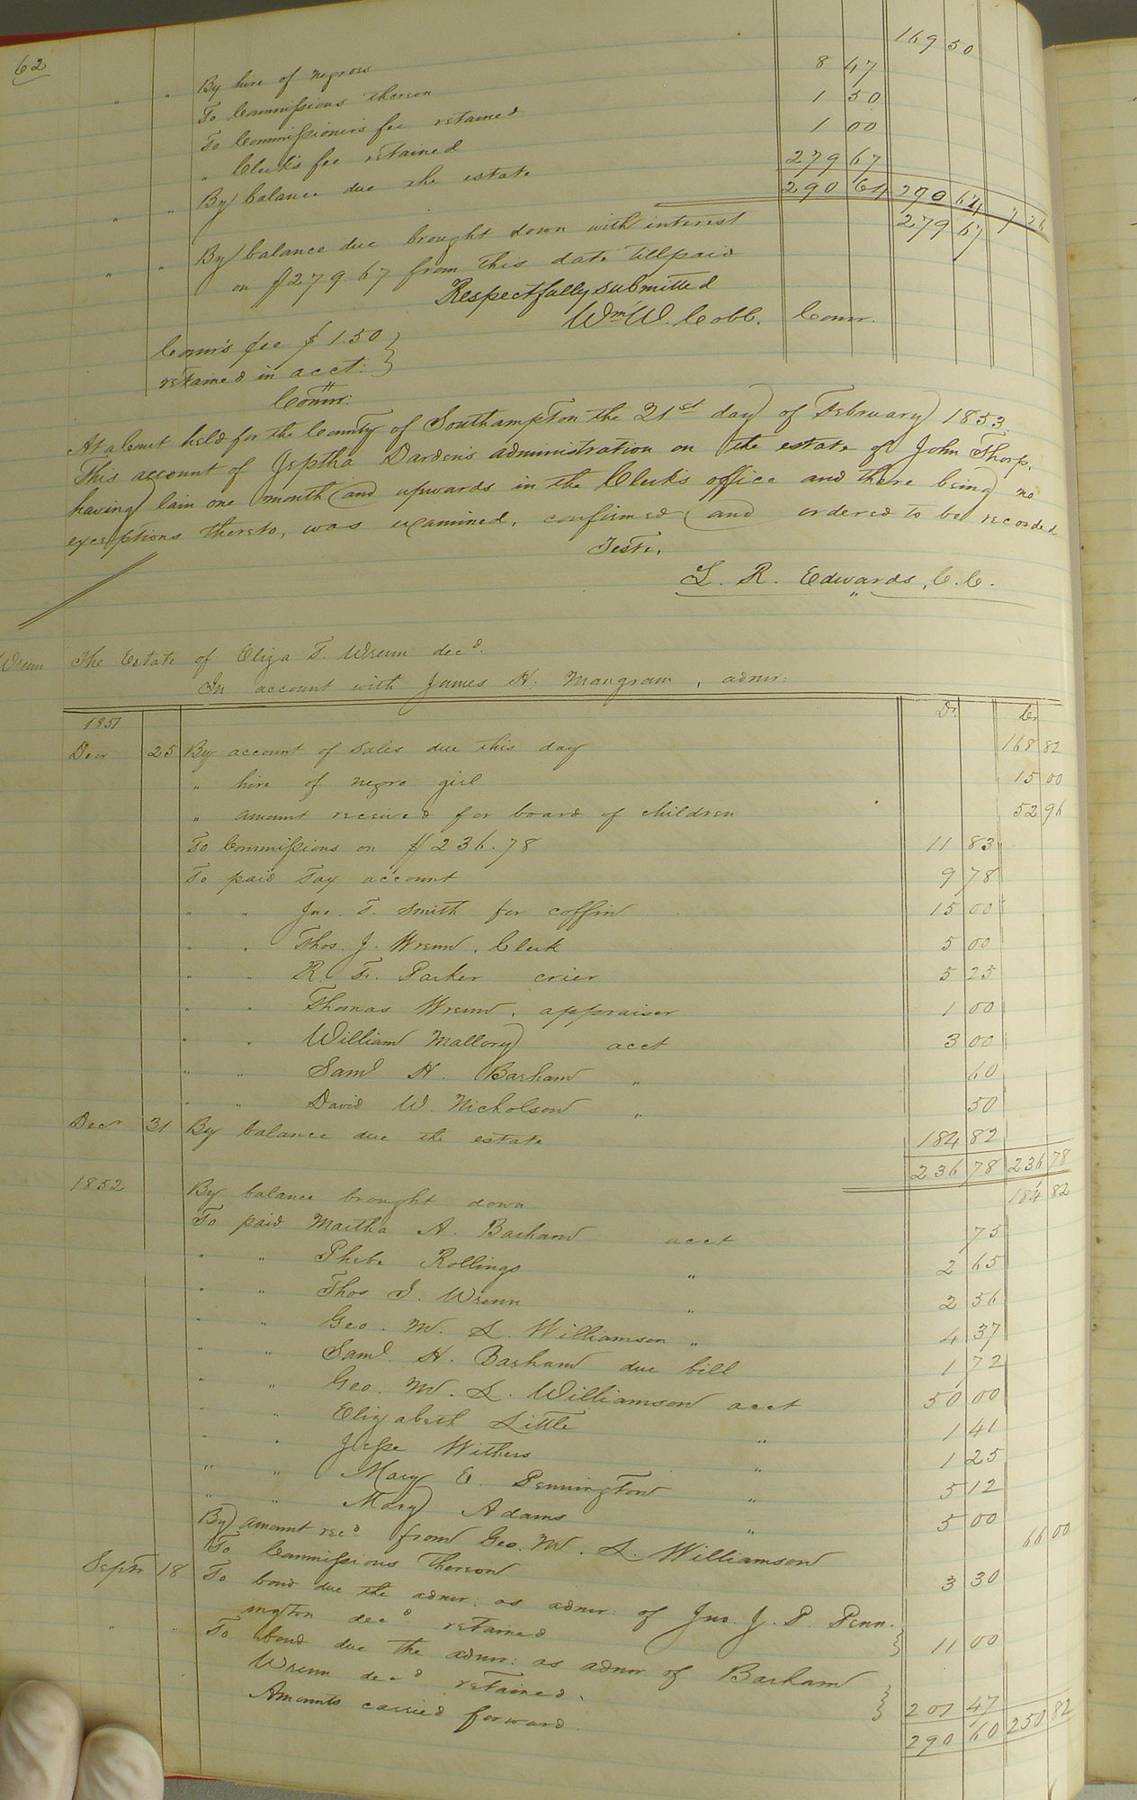 62
169 50
By hire of negroes
To Commissions thereon 8 47
To Commissioner's fee retained 1 50
" Clerk's fee retained 1 00
By balance due the estate 279 67
290 64 290 64 7 26
By balance due brought down with interest 279 67
on $279.67 from this date till paid
Respectfully submitted
Wm W. Cobb. Comr.
Comr's fee $1.50
retained in acct:
Comr:
At a Court held for the County of Southampton the 21st day of February 1853.
This account of Jeptha Darden's administration on the estate of John Thorp,
having lain one month and upwards in the Clerk's office and there being no
exceptions thereto, was examined, confirmed and ordered to be recorded
Teste,
L. R. Edwards, C.C.
Wrenn The Estate of Eliza T. Wrenn decd.
In account with James H. Mangram, admr:
1851 Dr. Cr
Decr 25 By account of sales due this day 168 82
" hire of negro girl 15 00
" amount received for board of children 52 96
To Commissions on $236.78 11 83
To paid Tax account 9 78
" " Jno. T. Smith for coffin 15 00
" " Thos. J. Wrenn, Clerk 5 00
" " R. F. Parker crier 5 25
" " Thomas Wrenn, appraiser 1 00
" " William Mallory acct 3 00
" " Saml H. Barham " 60
" " David W. Nicholson " 50
Decr 31 By balance due the estate 184 82
236 78 236 78
1852 By balance brought down 184 82
To paid Martha A. Barham acct 75
" " Phebe Rollings " 2 65
" " Thos J. Wrenn " 2 56
" " Geo. M. L. Williamson " 4 37
" " Saml H. Barham due bill 1 72
" " Geo. M. L. Williamson acct 50 00
" " Elizabeth Little " 1 41
" " Jesse Withers " 1 25
" " Mary E. Pennington " 5 12
" " Mary Adams " 5 00
By amount recd from Geo. M. L. Williamson 66 00
To Commissions thereon 3 30
Septr 18 To bond due the admr: as admr: of Jno. J. P. Penn-
ington decd retained 11 00
" " To bond due the admr: as admr of Barham
Wrenn decd retained. 201 47
Amounts carried forward 290 60 250 82